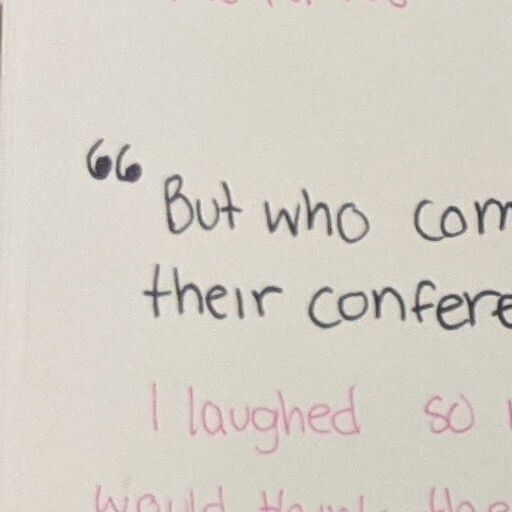 “ But who com
their confere
I laughed so
would the